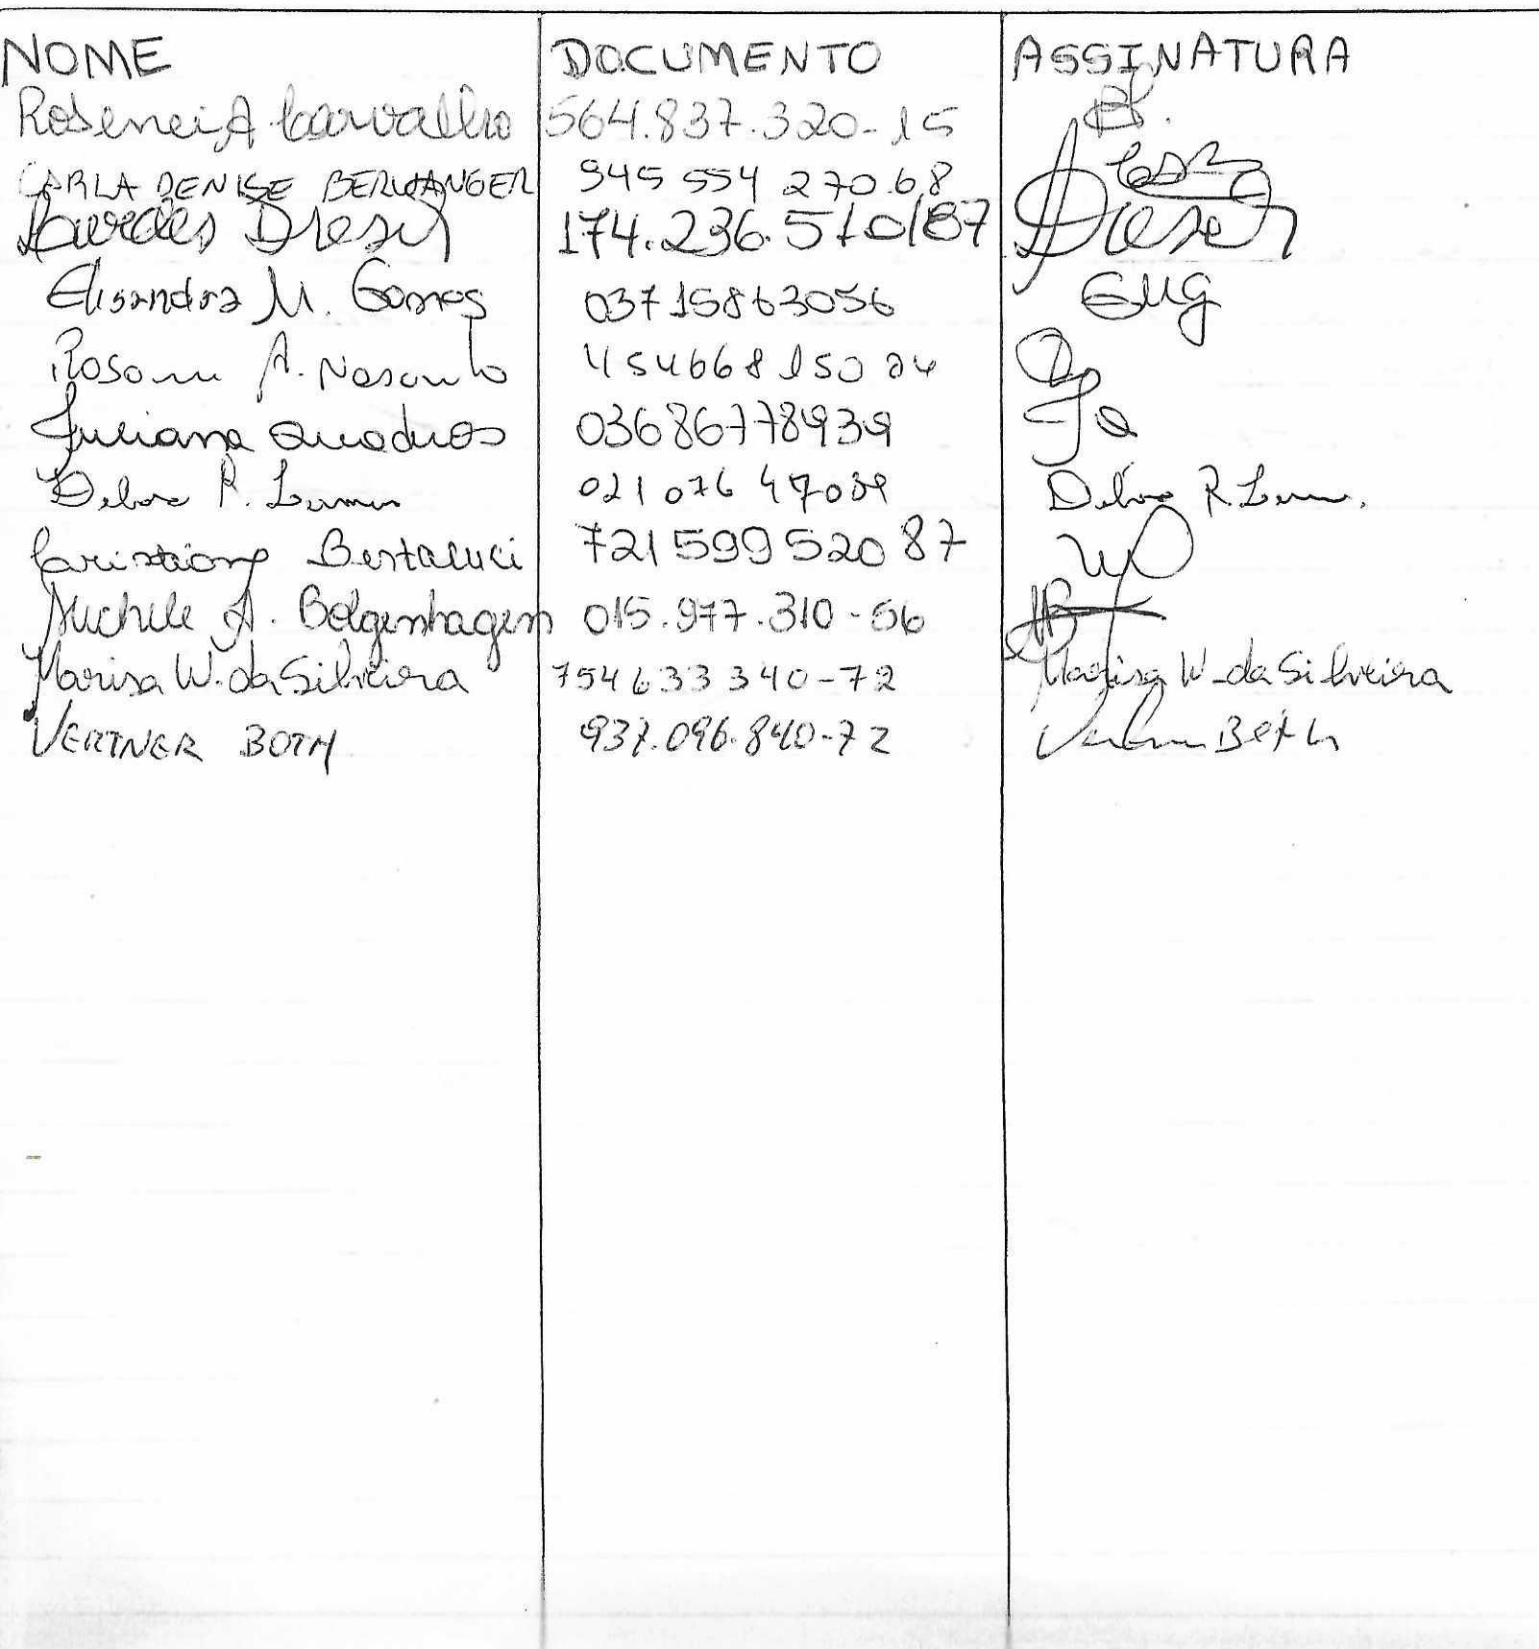 NOME DOCUMENTO ASSINATURA
Rosenei A Carvalho 564.837.320-15
CARLA DENISE BERWANGER 945 554 270.68
Lourdes Dresch 174.236.510/87 Dresch
Elisandra M. Gomes 03715863056 EMG
A. 454668150
Juliana Quadros 03686778939 JQ
Debora R. Lemes 021 076 47039 Debora R.
Cristiane Bertaluci 721 599 520 87
Michele A. Bolgenhagen 015.977.310-56 MB
Marisa W. da Silveira 754633340-72 Marisa W. da Silveira
VERTNER BOTH 937.096.840-72 Both